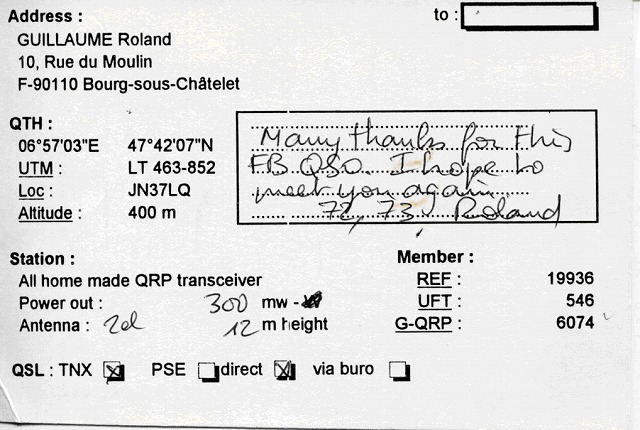 Address :
to :
GUILLAUME Roland
10, Rue du Moulin
F-90110 Bourg-sous-Châtelet
QTH :
06°57'03"E 47°42'07"N
UTM : LT 463-852
Loc : JN37LQ
Altitude : 400 m
Many thanks for this
FB QSO. I hope to
meet you again
72, 73. Roland
Station :
All home made QRP transceiver
Power out : 300 mw - W
Antenna : 2el 12 m height
Member :
REF : 19936
UFT : 546
G-QRP : 6074
QSL : TNX PSE direct via buro